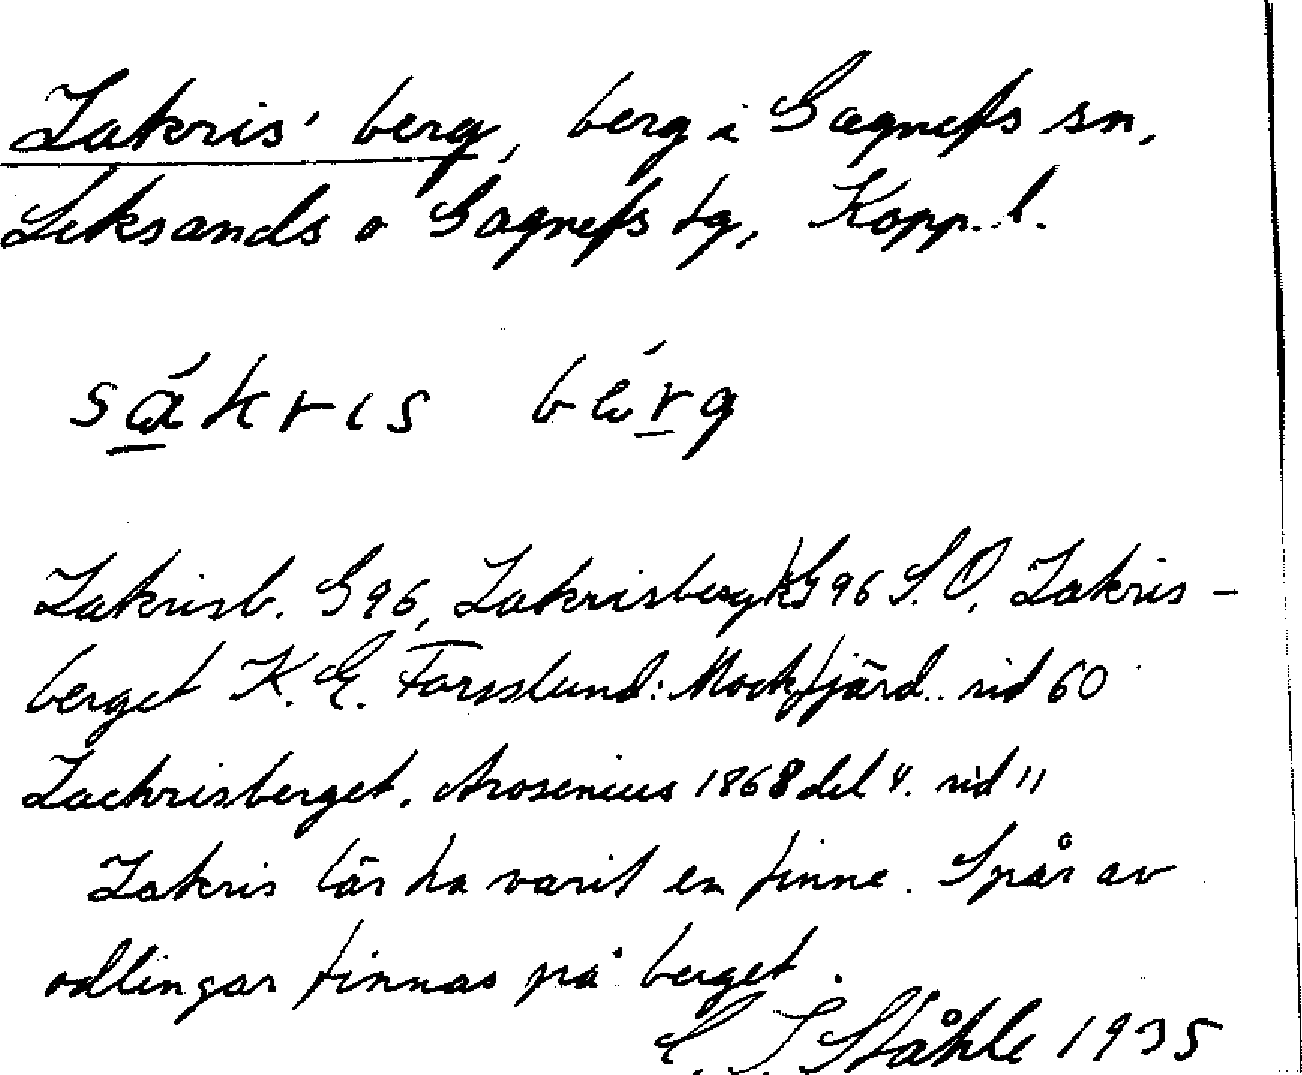 Zakris' berg, berg i Gagnefs sn,
Leksands o Gagnefs tg, Kopp. l.
sákris bérg
Zakrisb. G96, Zakrisberg KG96 S.O, Zakris-
berget K. E. Forsslund: Mockfjärd. sid 60
Zachrisberget. Arosenius 1868 del 4. sid 11
Zakris lär ha varit en finne. Spår av
odlingar finnas på berget.
C. I. Ståhle 1935